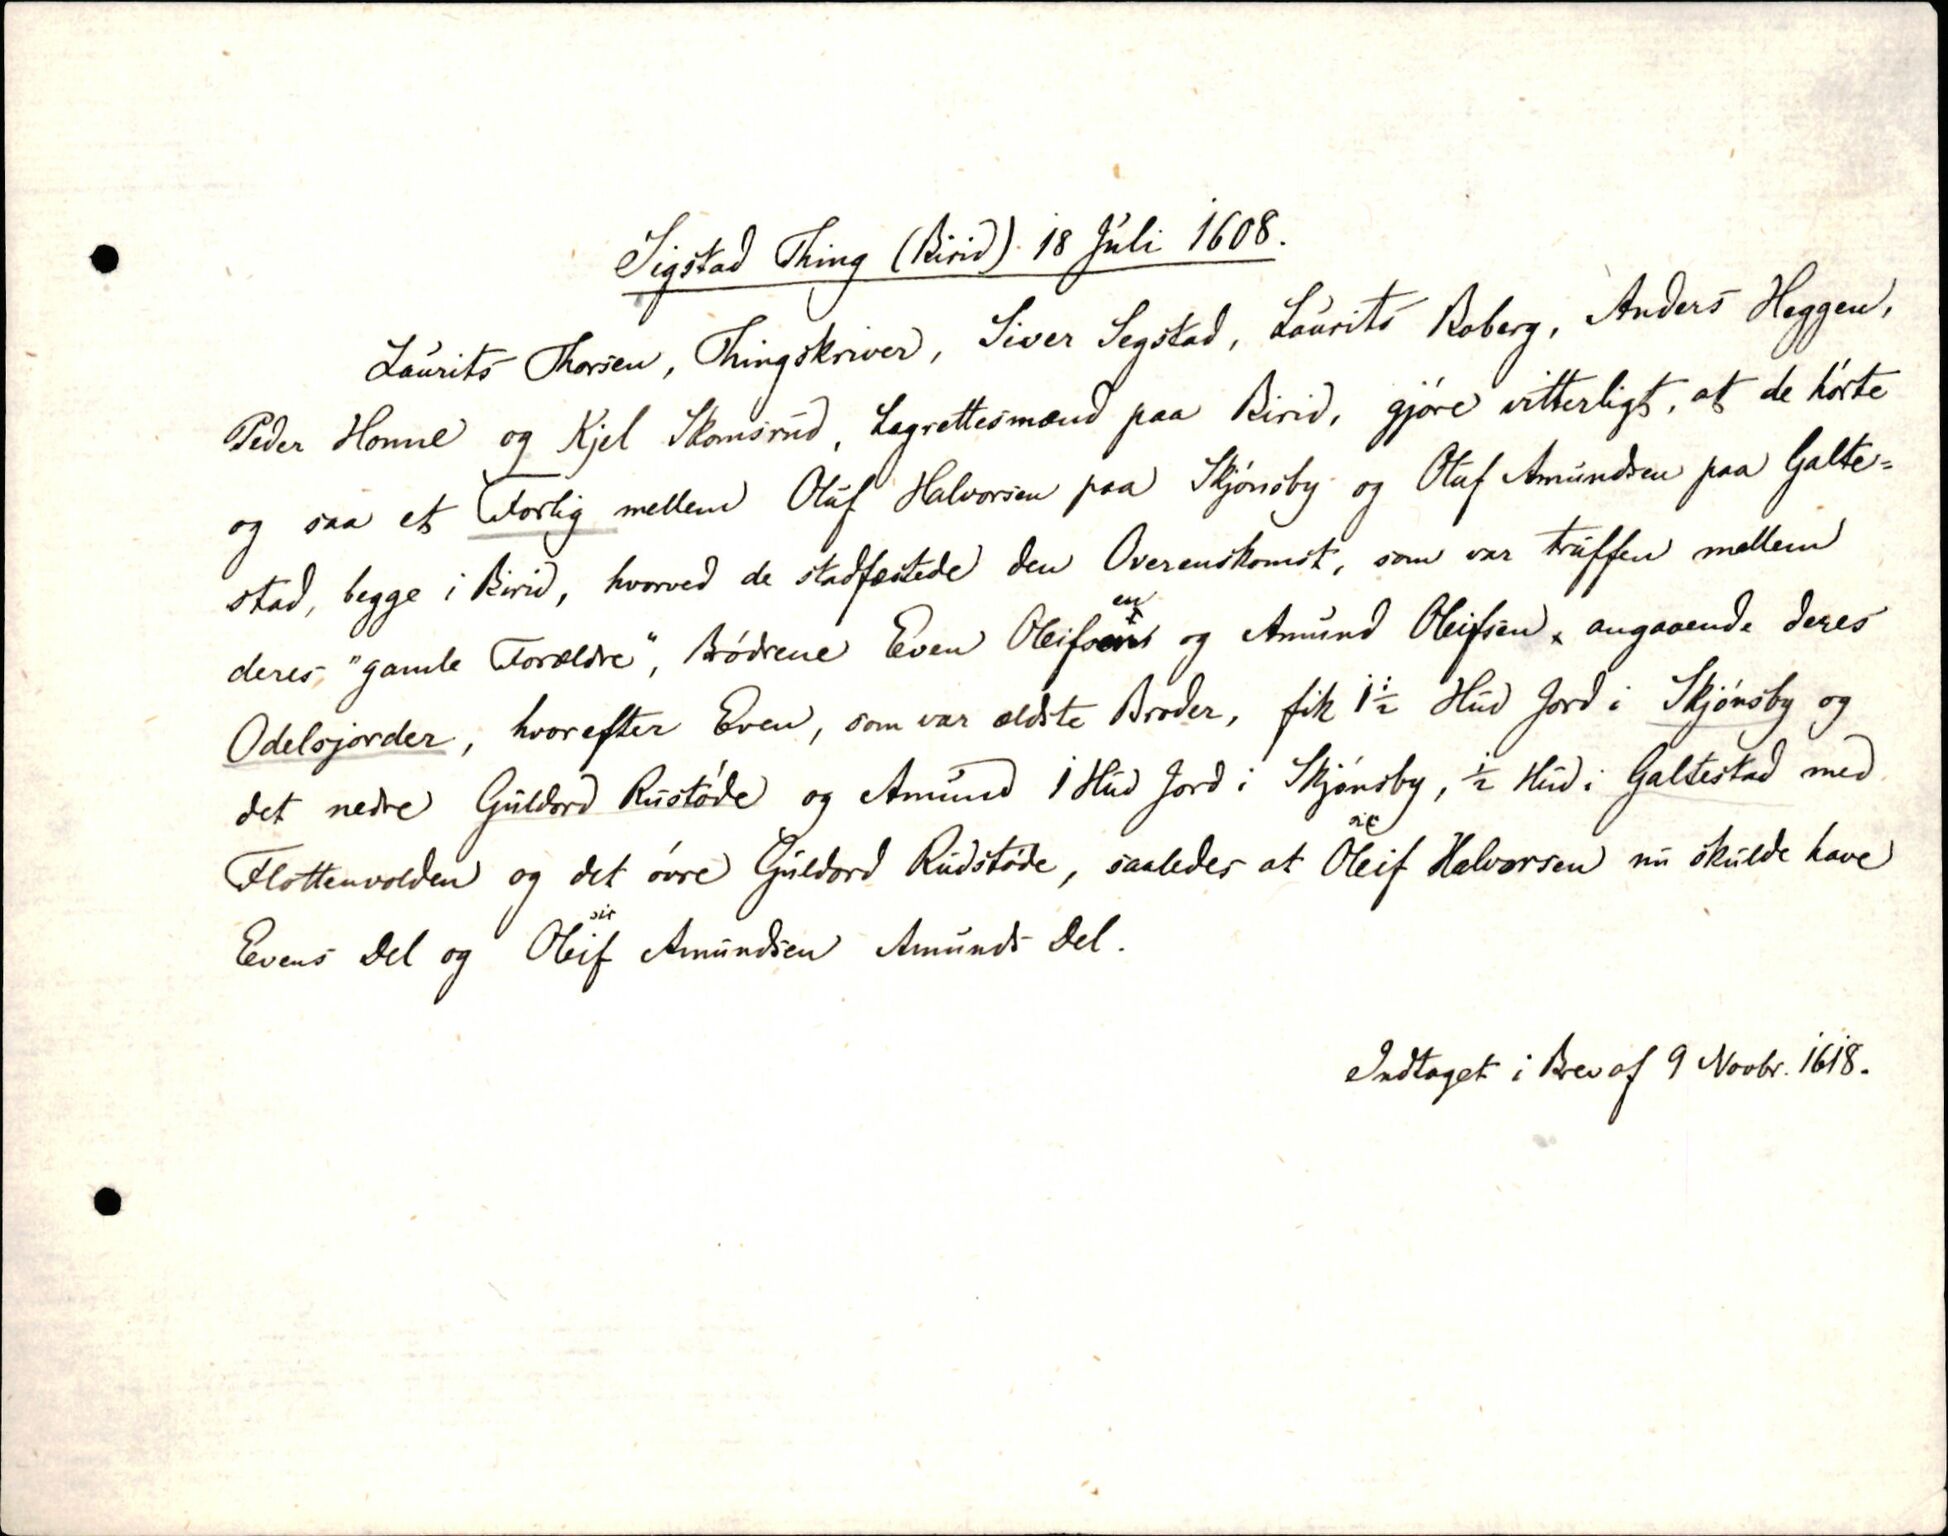 Sigstad Thing (Birid) 18 Juli 1608.
Laurits Thorsen, Thingskriver, Siver Segstad, Laurits Roberg, Anders Heggen,
Peder Honne og Kjel Skomsrud, Lagrettesmænd paa Birid, gjøre vitterligt, at de hørte
og saa et Forlig mellem Oluf Halvorsen paa Skjønsby og Oluf Amundsen paa Galte=
stad, begge i Birid, hvorved de stadfæstede den Overenskomst, som var truffen mellem
deres "gamle Forældre", Brødrene Even Oleifsen og Amund Oleifsen, angaaende deres
Odelsjorder, hvorefter Even, som var ældste Broder, fik 1½ Hud Jord i Skjønsby og
det nedre Guldord Rustøde og Amund 1 Hud Jord i Skjønsby, ½ Hud i Galtestad med
Flottenvolden og det øvre Guldord Rudstøde, saaledes at Oleif sic Halvorsen nu skulde have
Evens Del og Oleif sic Amundsen Amunds Del.
Indtaget i Brev af 9 Novbr. 1618.